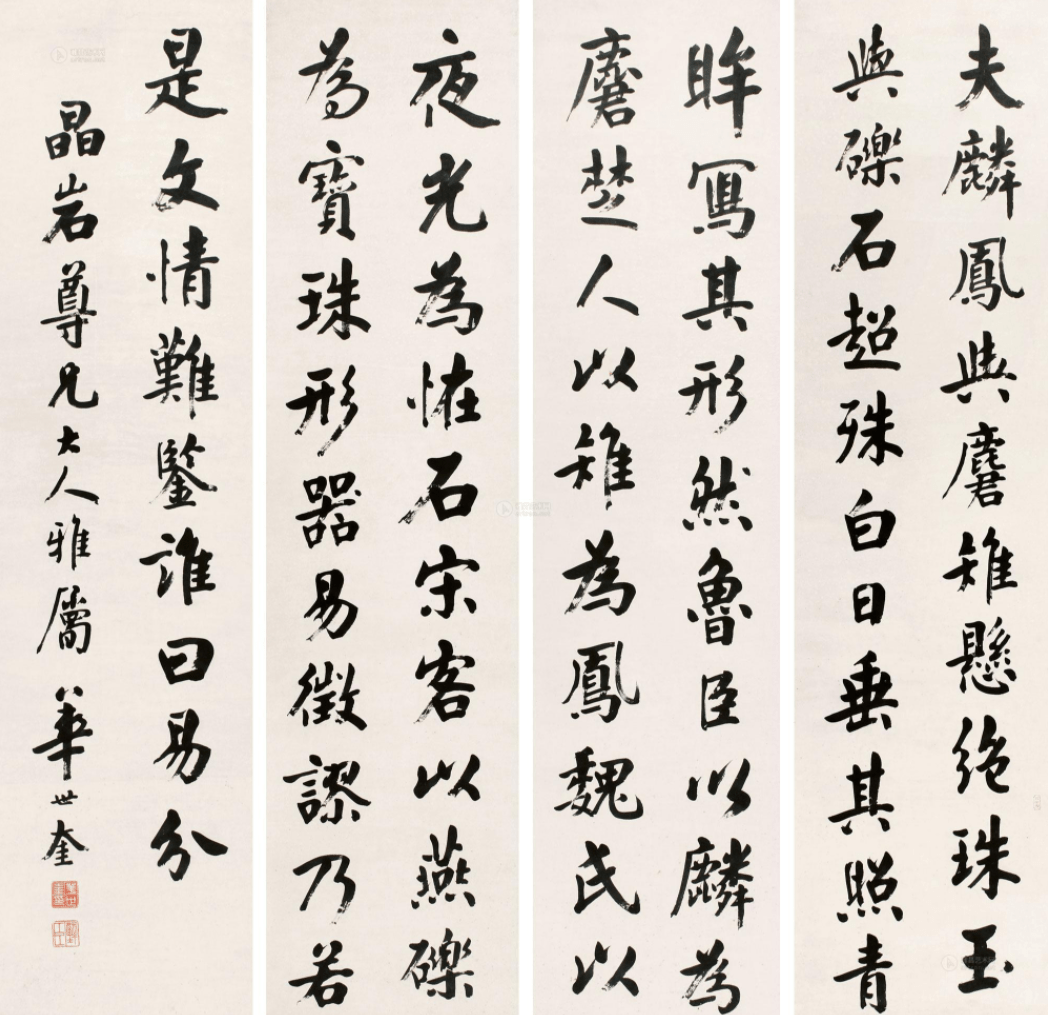 夫麟鳳與麏雉懸絶珠玉
與礫石超殊白日垂其照青
眸寫其形然魯臣以麟為
麏楚人以雉為鳳魏氏以
夜光為恠石宋客以燕礫
為寶珠形器易徵謬乃若
是文情難鑒誰曰易分
晶岩尊兄大人雅屬 華世奎